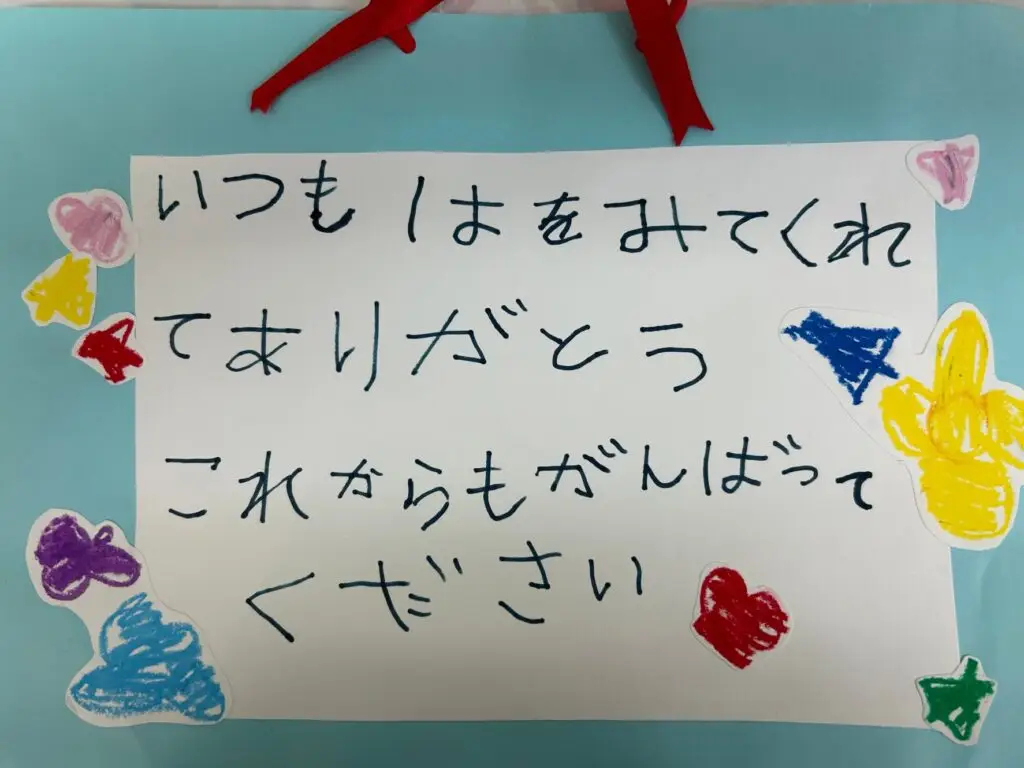 いつも はをみてくれ
てありがとう
これからもがんばって
ください